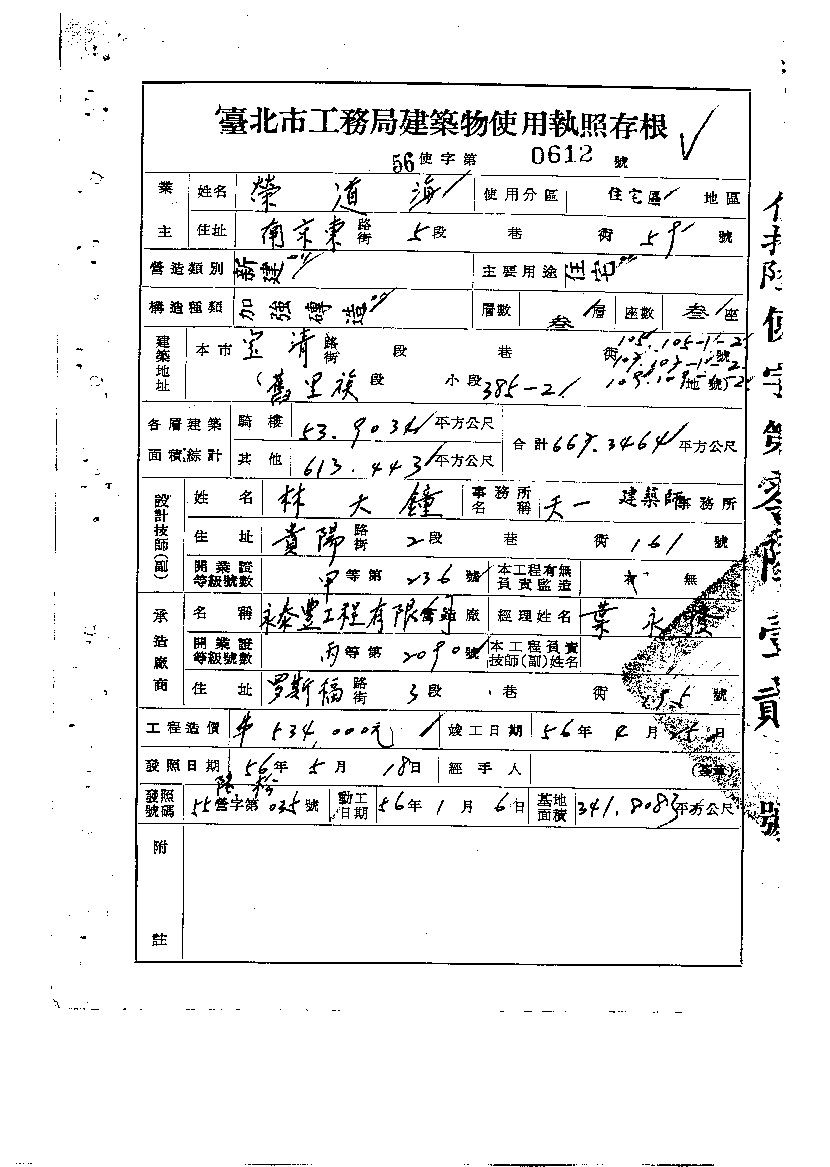 臺北市工務局建築物使用執照存根
56使字第 0612 號
業主 姓名 榮道海 使用分區 住宅區 地區
住址 南京東路街 5段 巷 街 59 號
營造類別 新建 主要用途 住宅
構造種類 加強磚造 層數 叁層 座數 叁座
建築地址 本市 宝清路街 段 巷 街 105. 105-1-25 號
(舊里族段 小段 385-21 地號)
各層建築面積綜計 騎樓 53.9034 平方公尺 合計 667.3464 平方公尺
其他 613.443 平方公尺
設計技師(副) 姓名 林大鐘 事務所名稱 天一 建築師事務所
住址 貴陽路街 2段 巷 街 161 號
開業證等級號數 甲等第 236 號 本工程有無負責監造 有 無
承造廠商 名稱 永泰豐工程有限 造廠 經理姓名 葉永
開業證等級號數 丙等第 2090 號 本工程負責技師(副)姓名
住址 罗斯福路街 3段 巷 街 號
工程造價 534,000元 竣工日期 56年 4月 日
發照日期 56年 5月 18日 經手人 (蓋章)
發照號碼 55營字第 035 號 動工日期 56年 1月 6日 基地面積 341.8083 平方公尺
附註
使字第零陸壹貳號